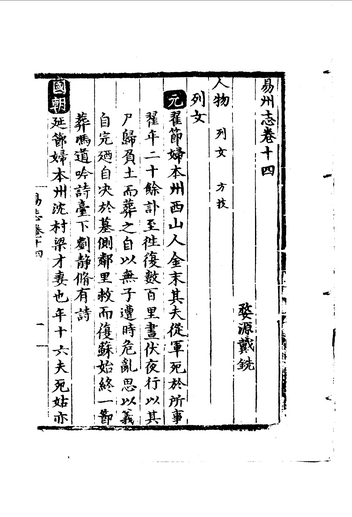 易州志卷十四
婺源戴銑
人物 列女 方技
列女
元 翟節婦本州西山人金末其夫從軍死於所事
翟年二十餘訃至往復數百里晝伏夜行以其
尸歸負土而葬之自以無子遭時危亂思以義
自完廼自决於墓側鄰里救而復蘇始終一節
葬馮道吟詩臺下劉静脩有詩
國朝 延節婦本州沈村梁才妻也年十六夫死姑亦
易志卷十四
一